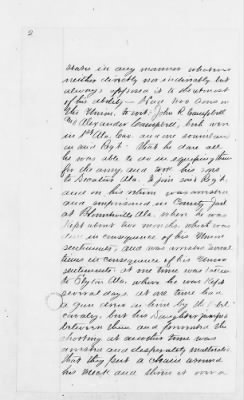 2
in any manner whatever
neither directly nor indirectly but
always opposed it to the utmost
of his ability - Have two sons in
the Union, to wit: John R. Campbell
Alexander Campbell, both were
in 1st Ala. Cav. and one
Regt. That he done all
he was able to do in equiping them
for the army and took his sons
to Decatur Ala. to join said Regt.
and on his return was arrested
and imprisoned in County Jail
at Blountsville Ala. where he was
kept about two months, which was
done in consequence of his Union
sentiments, and was arrested several
times in consequence of his Union
sentiments at one time was taken
to Elyton Ala. where he was kept
several days. at one time had
a gun drawn on him by the
cavalry, but his Daughter jumped
between them and prevented the
shooting at another time was
arrested and desperately maltreated
that they put a chain around
his neck and threw it over a